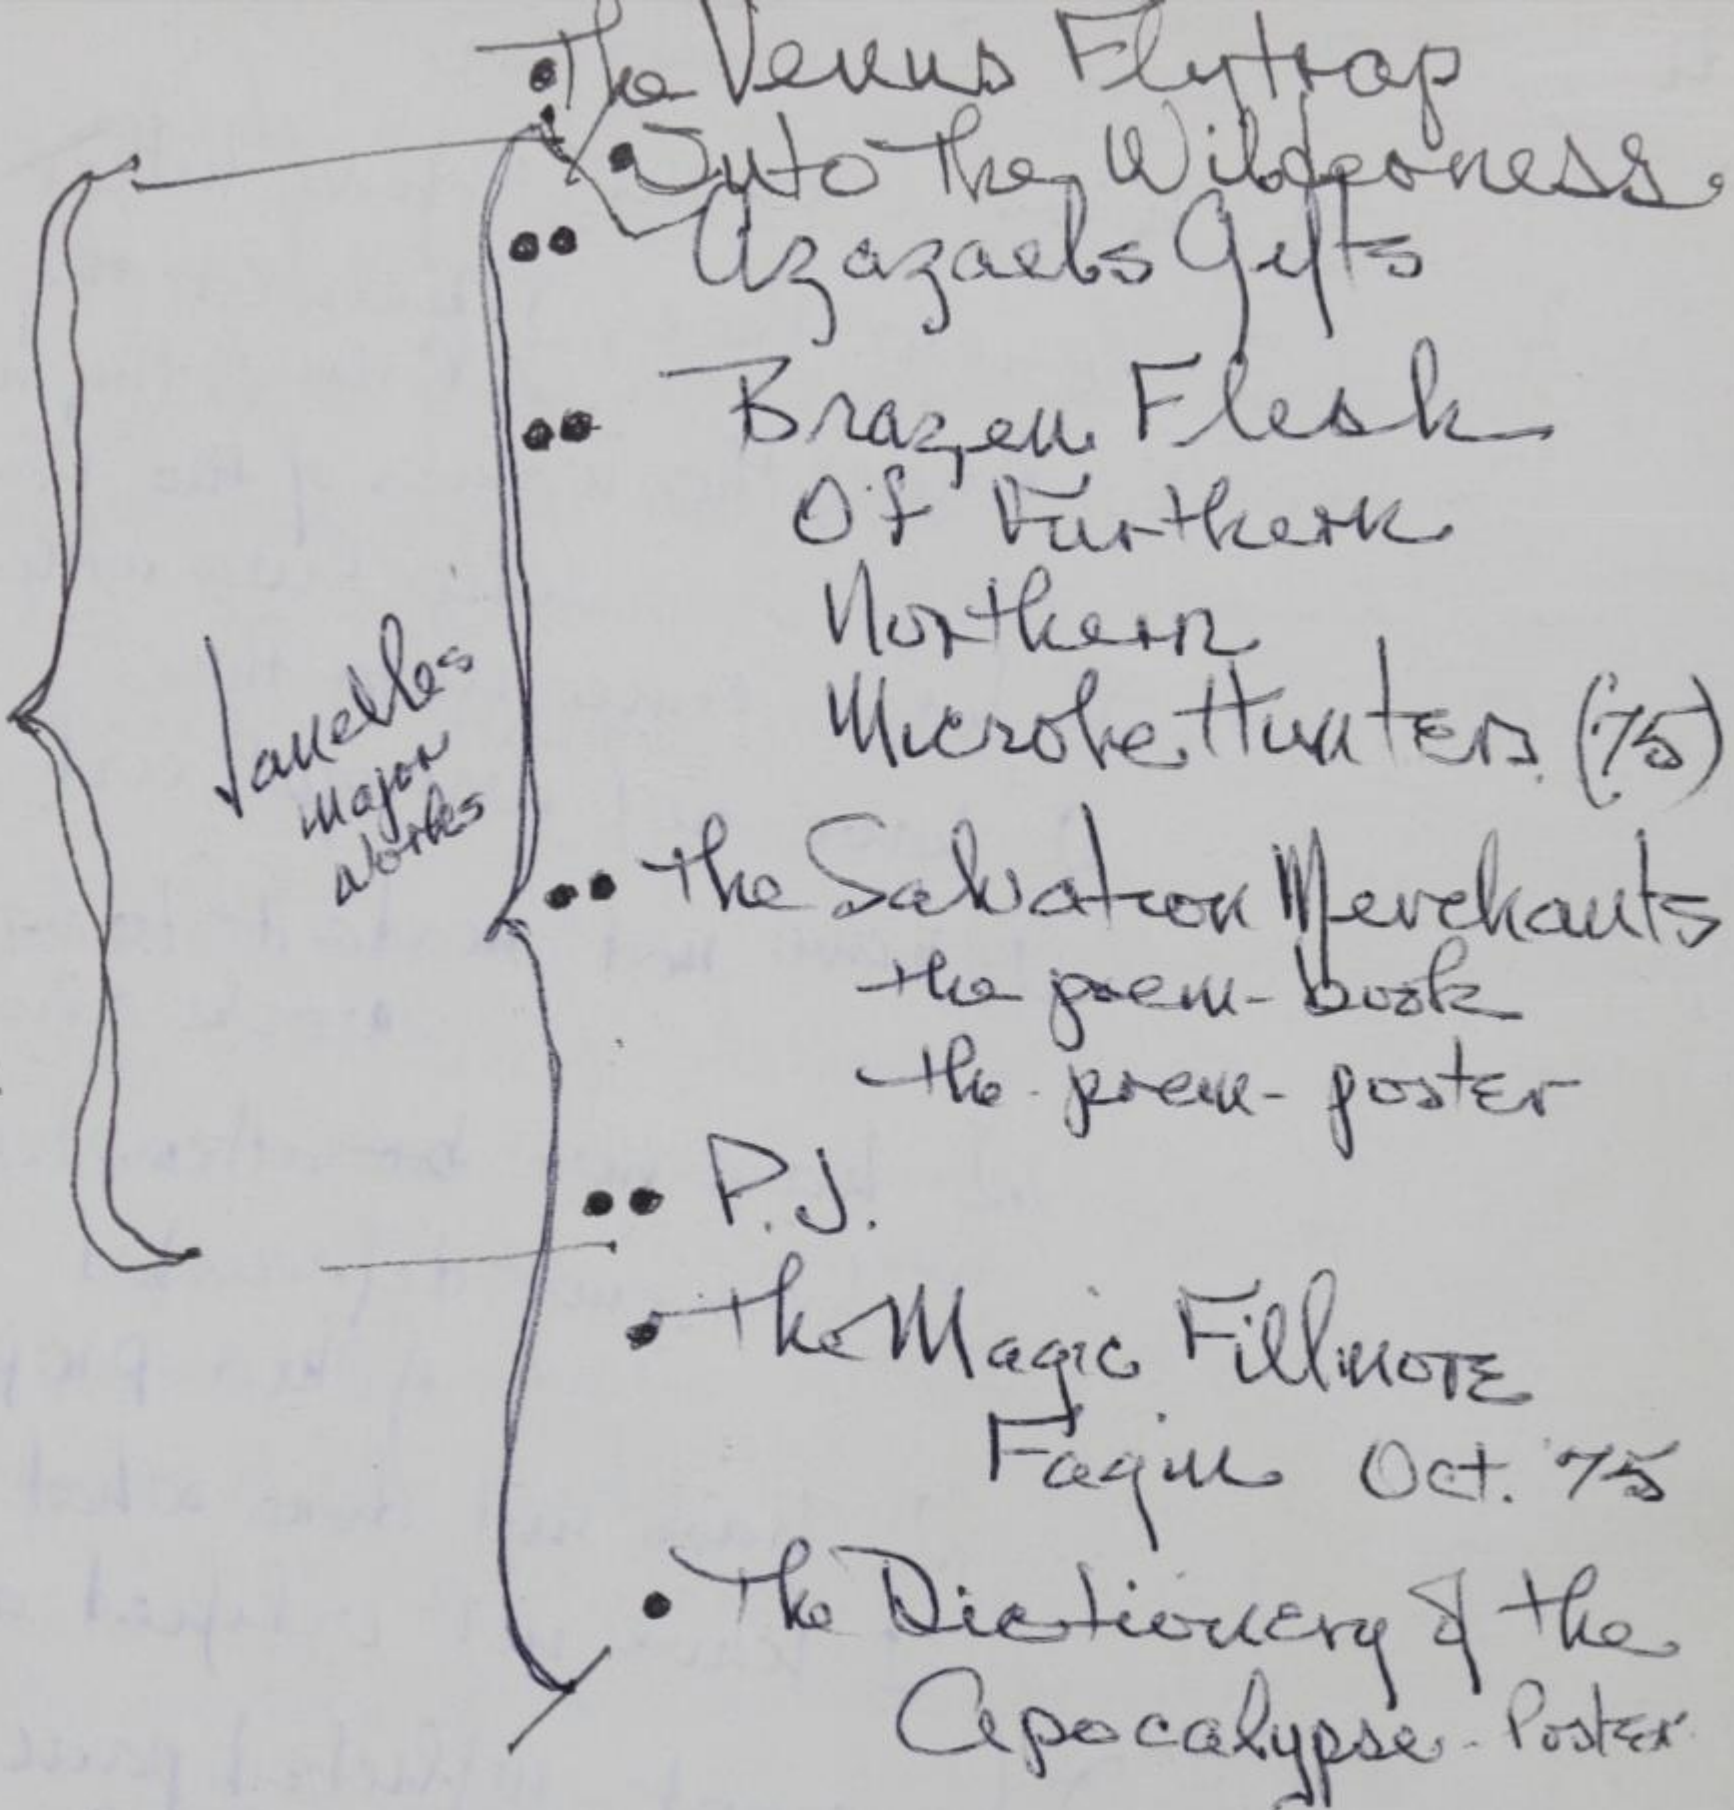 The Venus Flytrap
Into The Wilderness
Azazaels Gifts
Brazen Flesh
Of Furtherk
Northern
Microbe Hunters (75)
Janelles
Major
Works
the Salvation Merchants
the poem-book
the poem-poster
P.J.
the Magic Fillmore
Fagin Oct. '75
The Dictionery of the
Apocalypse - Poster